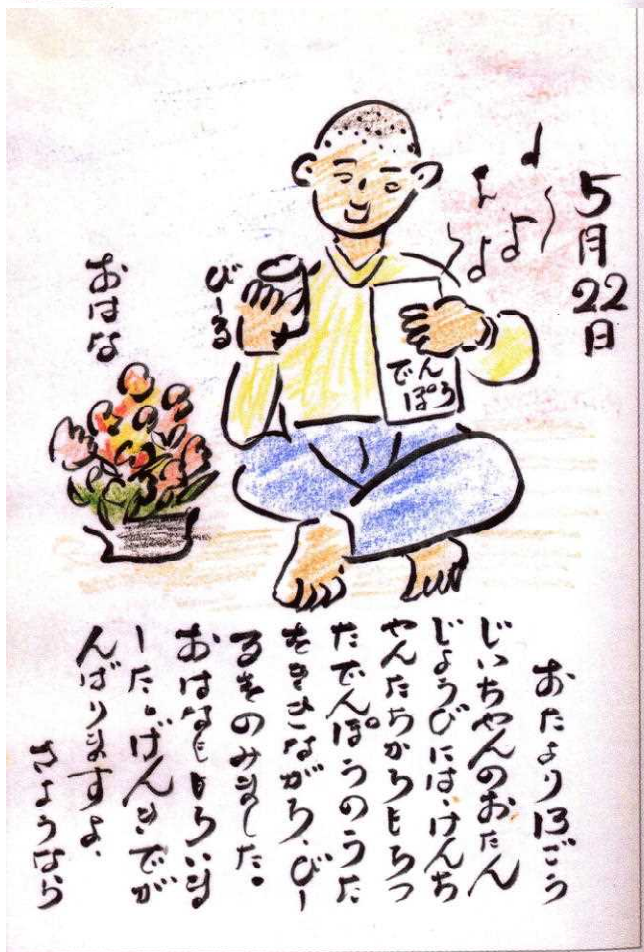 5月22日
びーる
でん
ぽう
おはな
おたより13ごう
じいちゃんのおたん
じょうびには、けんち
ゃんたちからもらっ
たでんぽうのうた
をききながら、びー
るをのみました。
おはなももらいまし
ーた。げんきでが
んばりますよ、
さようなら